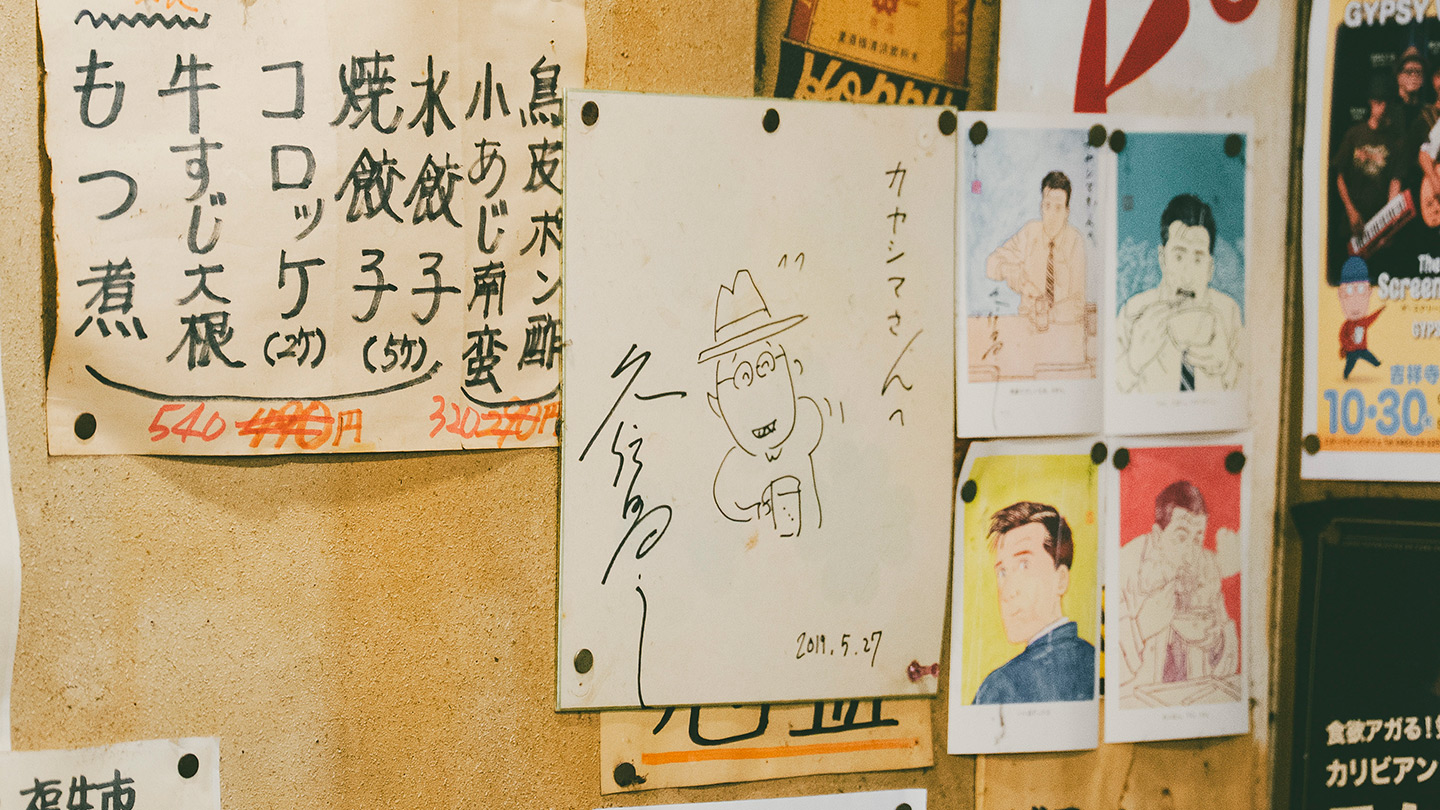 鳥皮ポン酢
小あじ南蛮
水餃子
焼餃子
(5ケ)
コロッケ(2ケ)
牛すじ大根
もつ煮
540 490円
320 290円
カヤシマさんへ
久住昌之
2019.5.27
HOPPY
GYPSY
The
Screen
GYP
吉祥寺
10・30
食欲アガる!
カリビアン